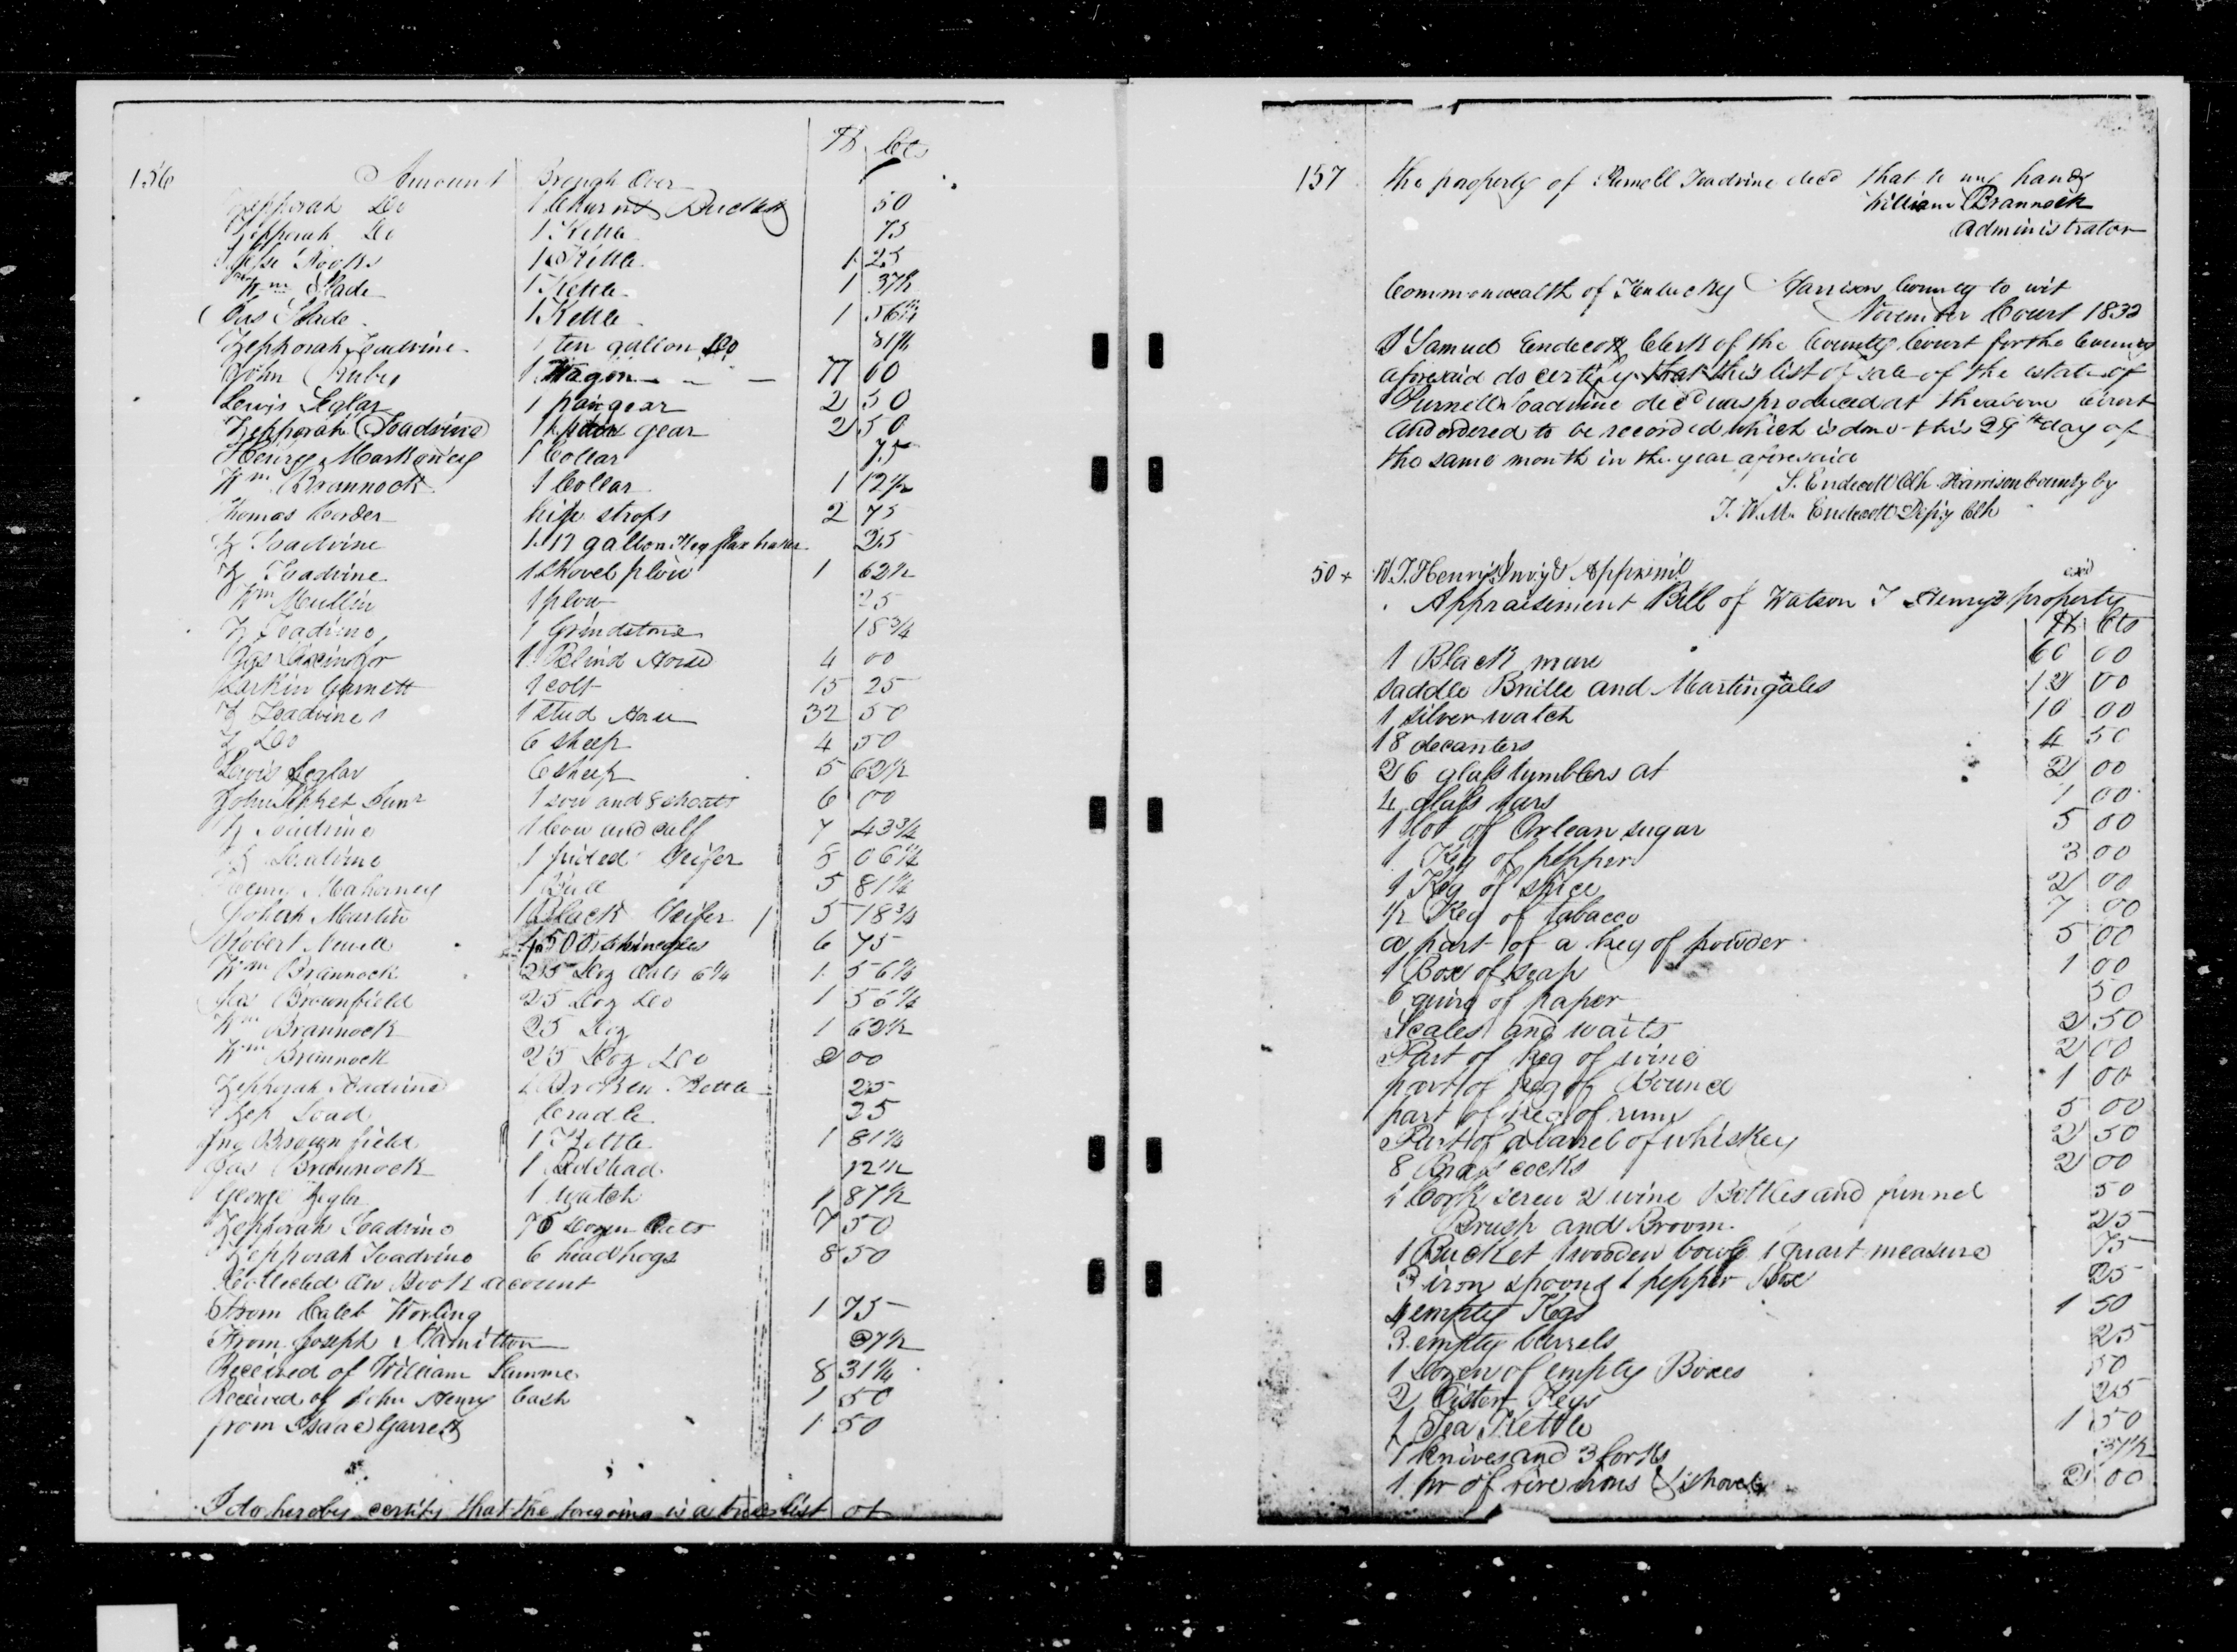 156
$ Cts
Amount Brough Over
Zepporah Do 1 Churn & Bucket 50
Zepporah Do 1 Kettle 75
Jesse Rooks 1 Kettle 1 25
Wm Slade 1 Kettle 1 37½
Gas Slade 1 Kettle 1 56¼
Zepporah Toadvine 1 ten gallon Do 81¼
John Ruby 1 Wagon 77 00
Lewis Leglar 1 pair gear 2 50
Zepporah Toadvine 1 pair gear 2 50
George Markowey 1 Collar 75
Wm Brannock 1 Collar 1 12½
Thomas Corder hip strops 2 75
Z Toadvine 1 17 gallon Keg flax 25
Z Toadvine 1 shovel plow 1 62½
Wm Mullin 1 plow 25
Z Toadvine 1 Grindstone 18¾
1 Blind Horse 4 00
Larkin Garnett 1 colt 15 25
Z Toadvine 1 stud Horse 32 50
Z Do 6 sheep 4 50
Lewis Leglar 6 sheep 5 62½
John Junr 1 sow and 8 shoats 6 00
Z Toadvine 1 Cow and calf 7 43¾
Z Toadvine 1 Heifer 8 06¼
Henry Mahorney 1 Bull 5 81¼
Joseph Martin 1 Black Heifer 5 18¾
Robert Newell 4500 shingles 6 75
Wm Brannock 25 Doz Oats 6¼ 1 56¼
Jas Brownfield 25 Doz Do 1 56¼
Wm Brannock 25 Doz 1 62½
Wm Brannock 25 Doz Do 2 00
Zepporah Toadvine 1 Broken Kettle 25
Zep Toad Cradle 25
Jno Brownfield 1 Kettle 1 81¼
Jas Brannock 1 Bedstead 12½
George Zeglar 1 watch 1 87½
Zepporah Toadvine 75 Dozen Oats 7 50
Zepporah Toadvine 6 head hogs 8 50
Collected on Book acount
From Caleb Worling 1 75
From Joseph Hamilton 37½
Received of William Lamme 8 31¼
Received of John Henry Cash 1 50
from Isaac Garrett 1 50
I do hereby certify that the foregoing is a true list of
157 the property of Purnell Toadvine decd that to my hands
William Brannock
Administrator
Commonwealth of Kentucky Harrison County to wit
November Court 1832
I Samuel Endecott Clerk of the County Court for the County
aforesaid do certify that this list of sale of the estate of
Purnell Toadvine decd was produced at the above court
and ordered to be recorded which is done this 29th day of
the same month in the year aforesaid
S. Endecott Clk Harrison County by
T. W. M. Endecott Depy Clk
50 + W. T. Henry's Invy & Appraismt
Appraisement Bill of Watson T Henry's property
$ Cts
1 Black mare 60 00
saddle Bridle and Martingales 12 00
1 silver watch 10 00
18 decanters 4 50
26 glass tumblers at 2 00
4 glass jars 1 00
1 lot of Orlean sugar 5 00
1 Keg of pepper 3 00
1 Keg of spice 2 00
½ Keg of tobacco 7 00
a part of a keg of powder 5 00
1 Box of soap 1 00
6 quire of paper 50
Scales and waits 2 50
Part of keg of wine 2 00
part of keg of Bounce 1 00
part of keg of rum 5 00
Part of a barrel of whiskey 2 50
8 Brass cocks 2 00
1 Cork screw 2 wine Bottles and funnel 50
Brush and Broom 25
1 Bucket 1 wooden bowle 1 quart measure 75
3 iron spoons & pepper Box 25
4 empty Kegs 1 50
3 empty barrels 25
1 Dozen of empty Boxes 50
2 Cistern Keys 25
1 Tea Kettle 1 50
7 knives and 3 forks 37½
1 pr of fire irons & shovel 2 00